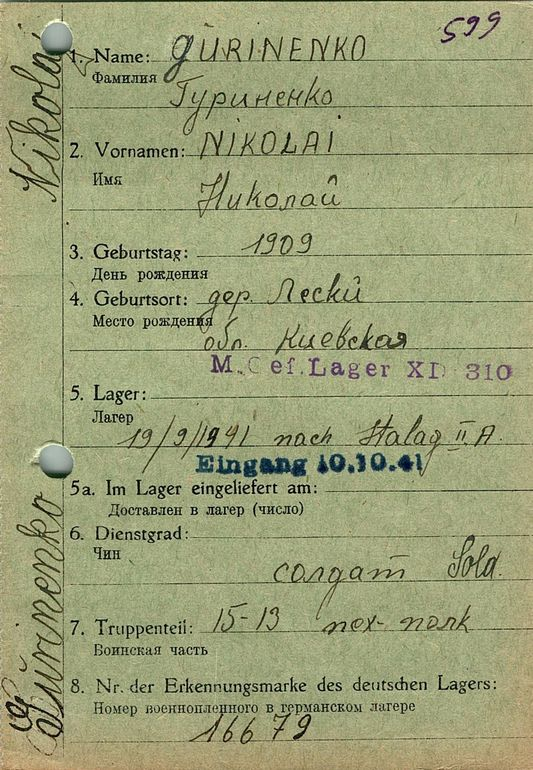 599
1. Name: GURINENKO
Фамилия
Гуриненко
2. Vornamen: NIKOLAI
Имя
Николай
3. Geburtstag: 1909
День рождения
4. Geburtsort: дер. Лески
Место рождения
обл. Киевская
M. Gef. Lager XI D 310
5. Lager:
Лагер
19/9/1941 nach Stalag II A.
Eingang 10.10.41
5a. Im Lager eingeliefert am:
Доставлен в лагер (число)
6. Dienstgrad:
Чин
солдат Sold.
7. Truppenteil: 15-13 пех- полк
Воинская часть
8. Nr. der Erkennungsmarke des deutschen Lagers:
Номер военнопленного в германском лагере
16679
Gurinenko Nikolai